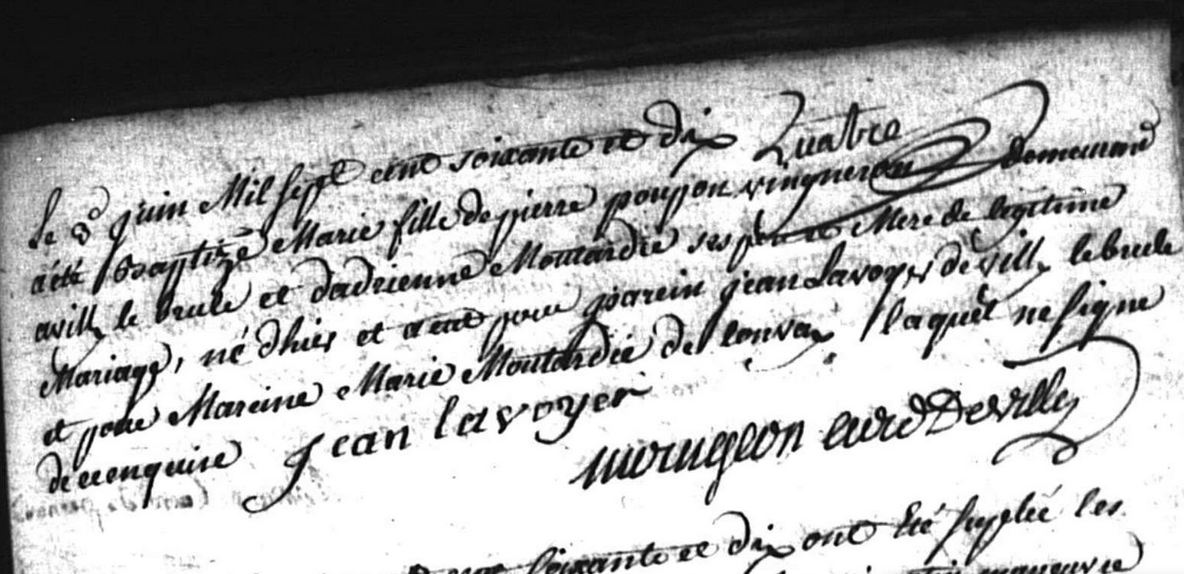 Le 3 juin Mil sept cent soixante et dix Quatre
a été Baptizé Marie fille de pierre poujon vingneron demeurant
a ville le brule et dadrienne Moutardié ses pere et Mere de legitime
Mariage, né dhier et a eut pour parein jean Lavoyer de ville le brule
et pour Mareine Marie Moutardié de conva laquel ne signe
de ce enquise jean lavoyer
curé De ville
soixante et dix ont été suplée les
maneuvre